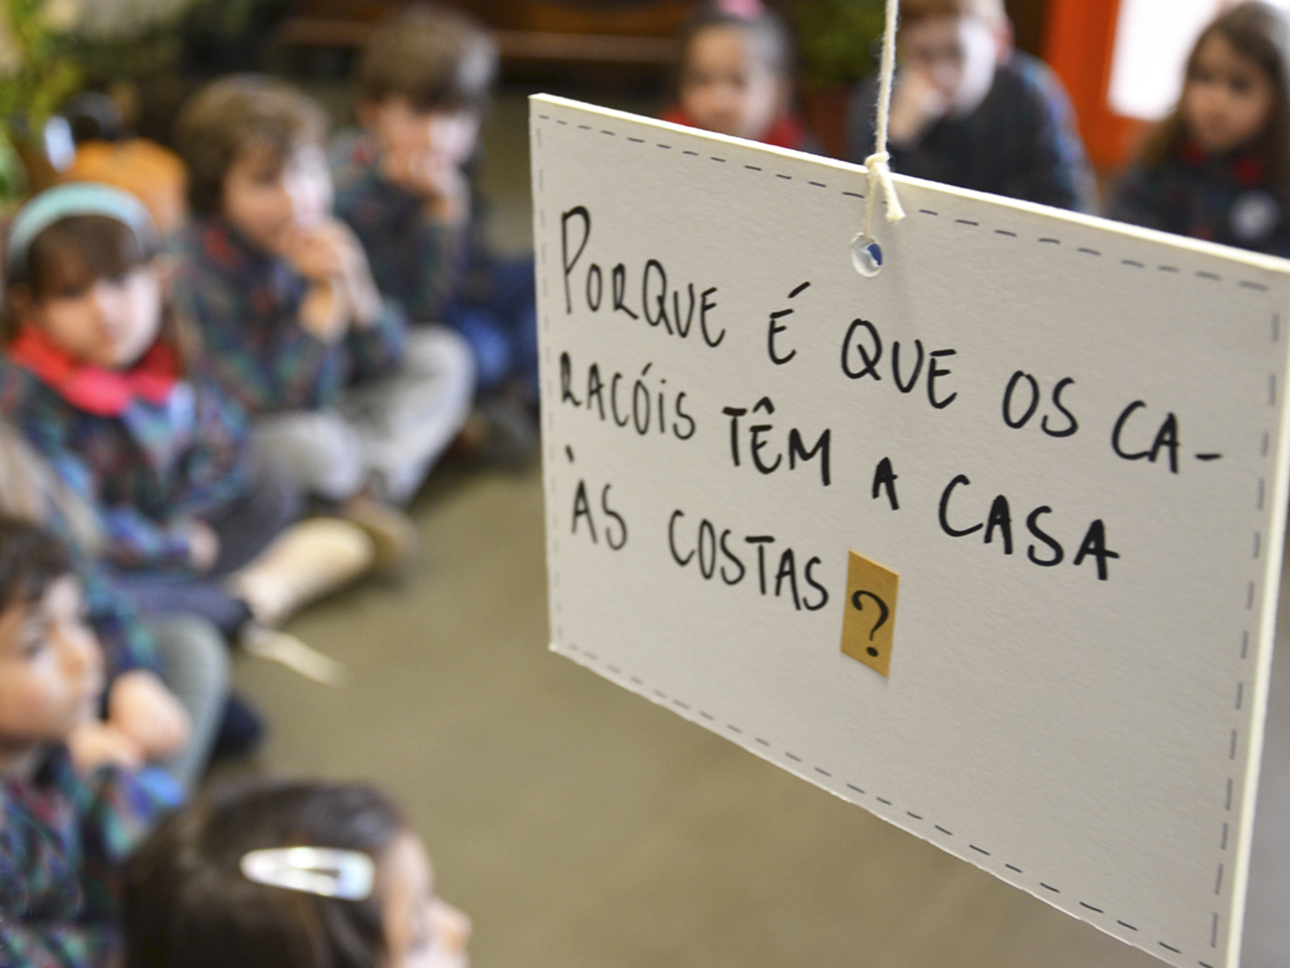 PORQUE É QUE OS CA-
RACÓIS TÊM A CASA
ÀS COSTAS?